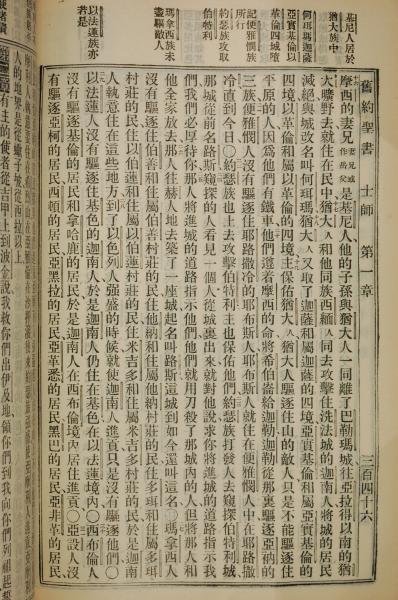 基尼人居於
猶大族中
何珥瑪迦薩
亞實基倫以
革倫四城墮
記便雅憫族
所行
約瑟族攻取
伯特利
瑪拿西族未
盡驅敵人
以法蓮族亦
若是
舊約聖書 士師 第一章 三百四十六
摩西的妻兄妻兄或作岳父是基尼人他的子孫與猶大人一同離了巴勒瑪城往亞拉得以南的猶
大曠野去就住在民中猶大人和他同族西緬人同去攻擊住洗法城的迦南人將城的居民
滅絕與城改名叫何珥瑪猶大人又取了迦薩和屬迦薩的四境亞實基倫和屬亞實基倫的
四境以革倫和屬以革倫的四境主保佑猶大人猶大人驅逐住山的敵人只是不能驅逐住
平原的人因為他們有鐵車他們遵著摩西的命將希伯崙給迦勒迦勒從那裏驅逐亞衲
三族便雅憫人沒有驅逐住耶路撒冷的耶布斯人耶布斯人就住在便雅憫人中在耶路撒
冷直到今日〇約瑟族也上去攻擊伯特利主也保佑他們約瑟族打發人去窺探伯特利城
那城從前名路斯窺探的人看見一個人從城裏出來就對他說求你將進城的道路指示我
們我們必厚待你那人將進城的道路指示他們他們就用刀殺了那城內的人但將那人和
他全家放去那人往赫人地去築了一座城起名叫路斯這城到如今還叫這名〇瑪拿西人
沒有驅逐住伯善和住屬伯善村莊的民住他納和住屬他納村莊的民住多珥和住屬多珥
村莊的民住以伯蓮和住屬以伯蓮村莊的民住米吉多和住屬米吉多村莊的民於是迦南
人執意住在這些地方到了以色列人強盛的時候就使迦南人進貢只是沒有驅逐他們〇
以法蓮人沒有驅逐住基色的迦南人於是迦南人仍住在基色在以法蓮境內〇西布倫人
沒有驅逐基倫的居民和拿哈鹿的居民於是迦南人在西布倫境內居住進貢〇亞設人沒
有驅逐亞柯的居民西頓的居民亞黑拉的居民亞革悉的居民黑巴的居民亞非革的居民
人的地界是從蠍子坡從西拉以上
有主的使者從吉甲上到波金說我救你們出伊及地領你們到我向你們列祖起誓